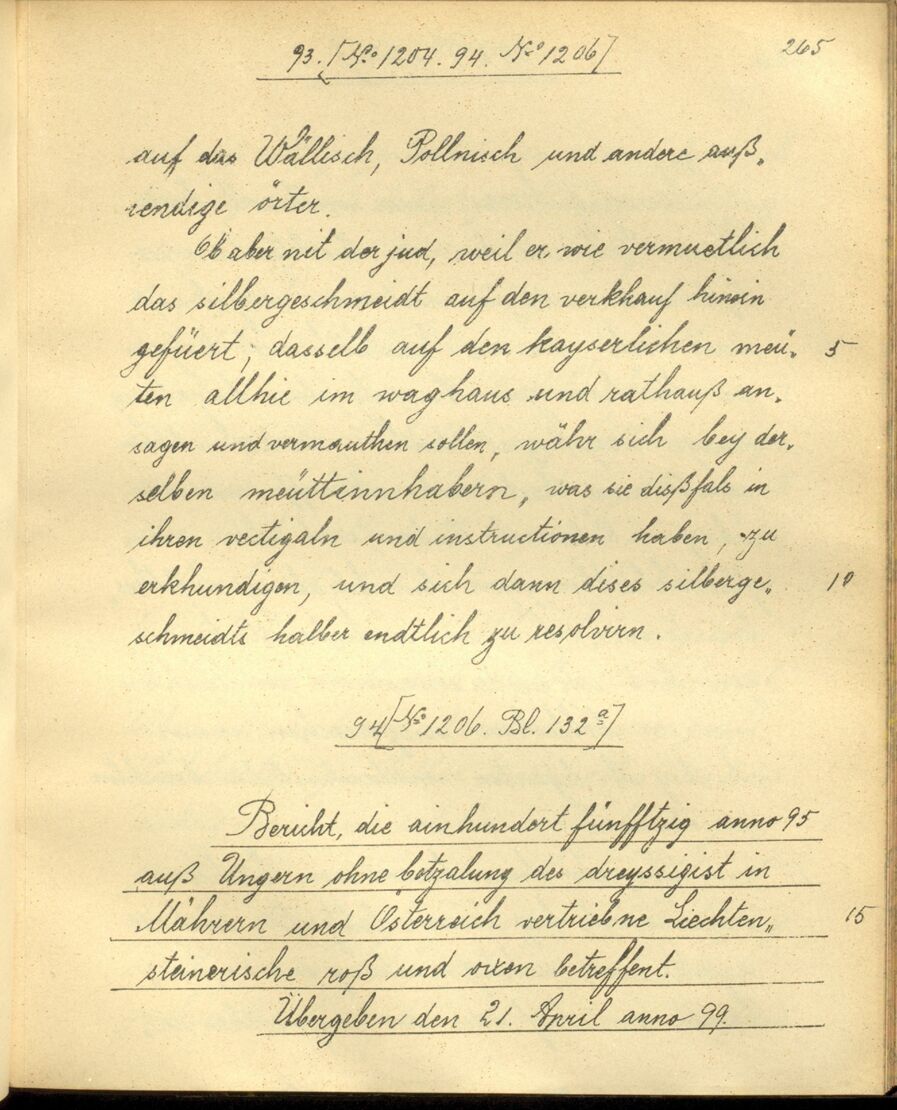 93. [No 1204. 94. No 1206] 265
auff das Wällisch, Pollnisch und andere auß„
wendige örter.
Ob aber nit der jud, weil er, wie vermuetlich
das silbergeschmeidt auf den verkhauf hinein
gefüert, dasselb auf den kayserlichen meü„ 5
ten allhie im waghaus und rathauß an„
sagen und vermauthen sollen, währ sich bey der„
selben meüttinnhabern, was sie dißfals in
ihren vectigaln und instructionen haben, zu
erkhundigen, und sich dann dises silberge„ 10
schmeidts halber endtlich zu resolvirn.
94 [No 1206. Bl. 132a]
Bericht, die ainhundert fünfftzig anno 95
auß Ungern ohne betzalung des dreyssigist in
Mährern und Österreich vertriebne Liechten„ 15
steinerische roß und oxen betreffent.
Übergeben den 21. April anno 99.